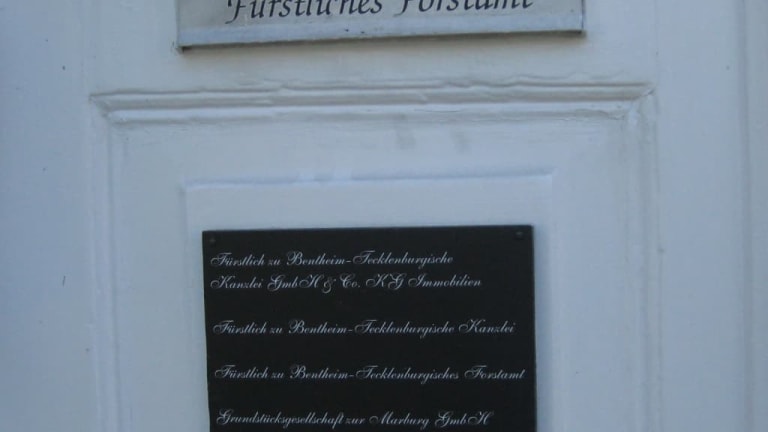 Fürstliches Forstamt
Fürstlich zu Bentheim-Tecklenburgische
Kanzlei GmbH & Co. KG Immobilien
Fürstlich zu Bentheim-Tecklenburgische Kanzlei
Fürstlich zu Bentheim-Tecklenburgisches Forstamt
Grundstücksgesellschaft zur Marburg GmbH